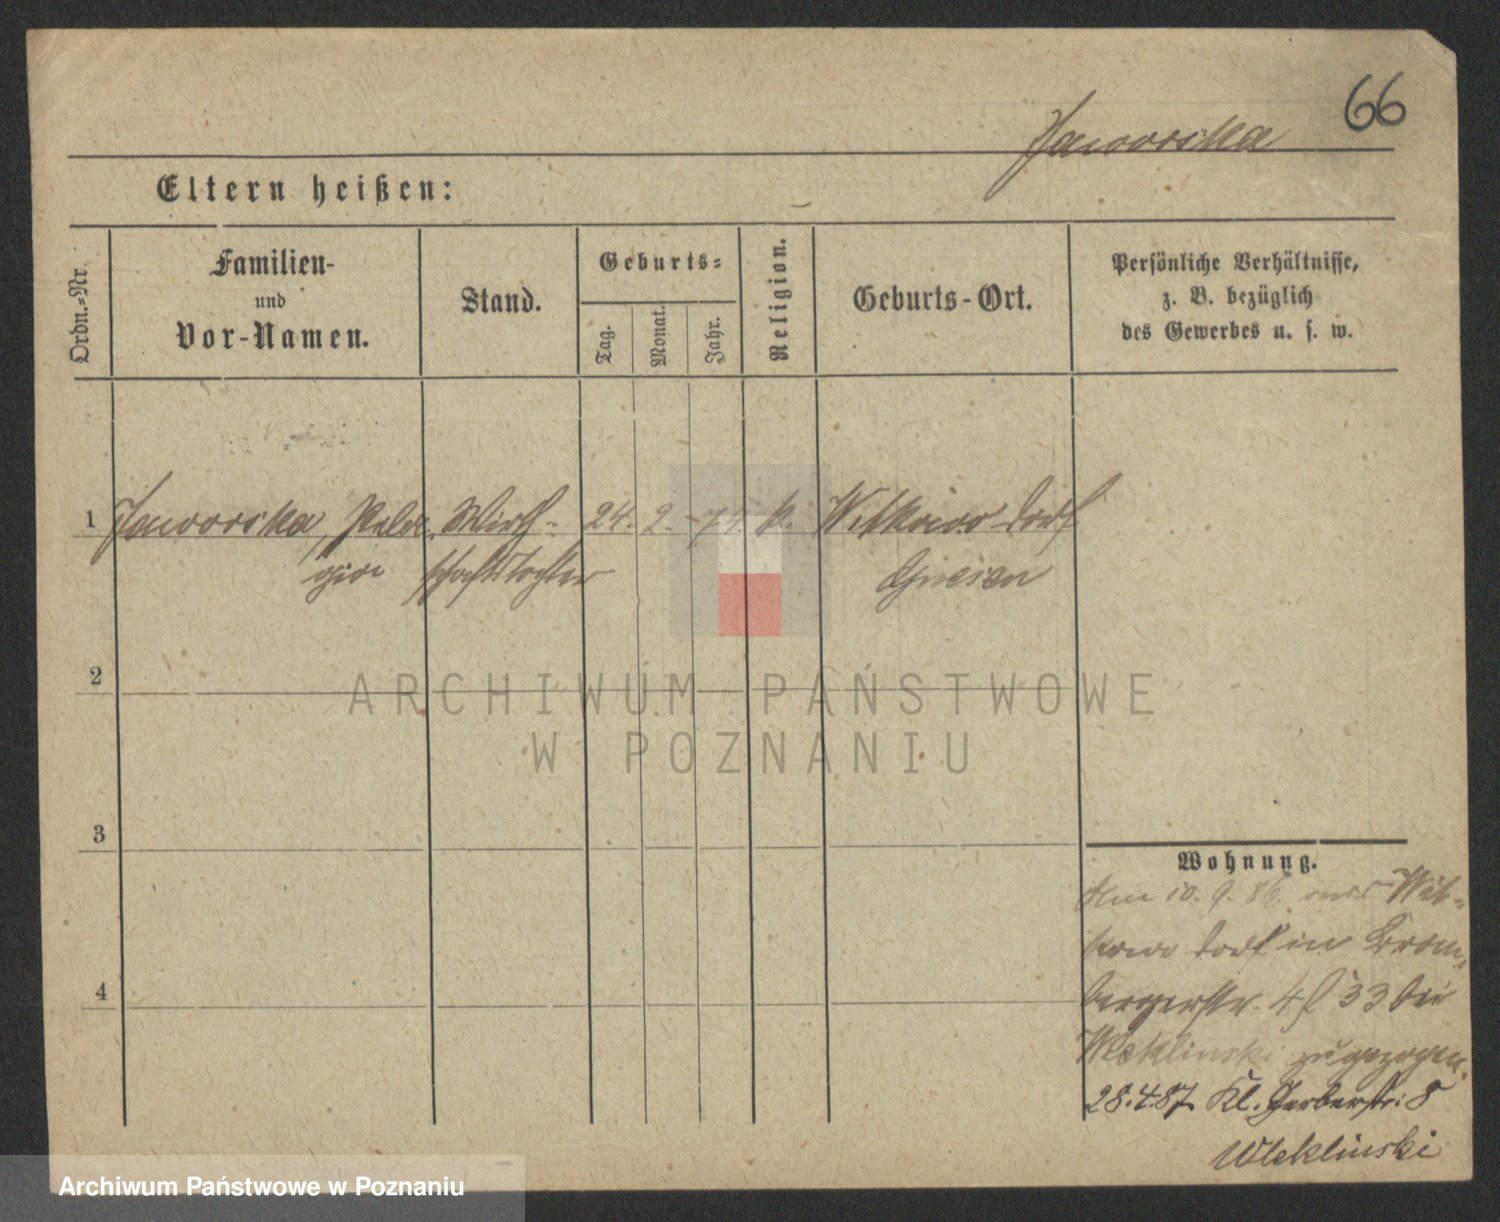 66
Jaworska
Eltern heißen:
Ordn.=Nr
Familien-
und
Vor-Namen.
Stand.
Geburts=
Tag.
Monat.
Jahr.
Religion.
Geburts-Ort.
Persönliche Verhältnisse,
z. B. bezüglich
des Gewerbes u. s. w.
1 Jaworska, Pela Wirth= 24. 2. 74. k. Witkowo Dorf
gia schaftstochter Gnesen
ARCHIWUM PAŃSTWOWE
W POZNANIU
2
3
4
Wohnung.
Am 10. 9. 86. aus Wit=
kowo Dorf in Brom=
bergerstr. 33 bei
Wleklinski zugezogen.
28.4.87 Kl. Gerberstr: 8
Wleklinski
Archiwum Państwowe w Poznaniu